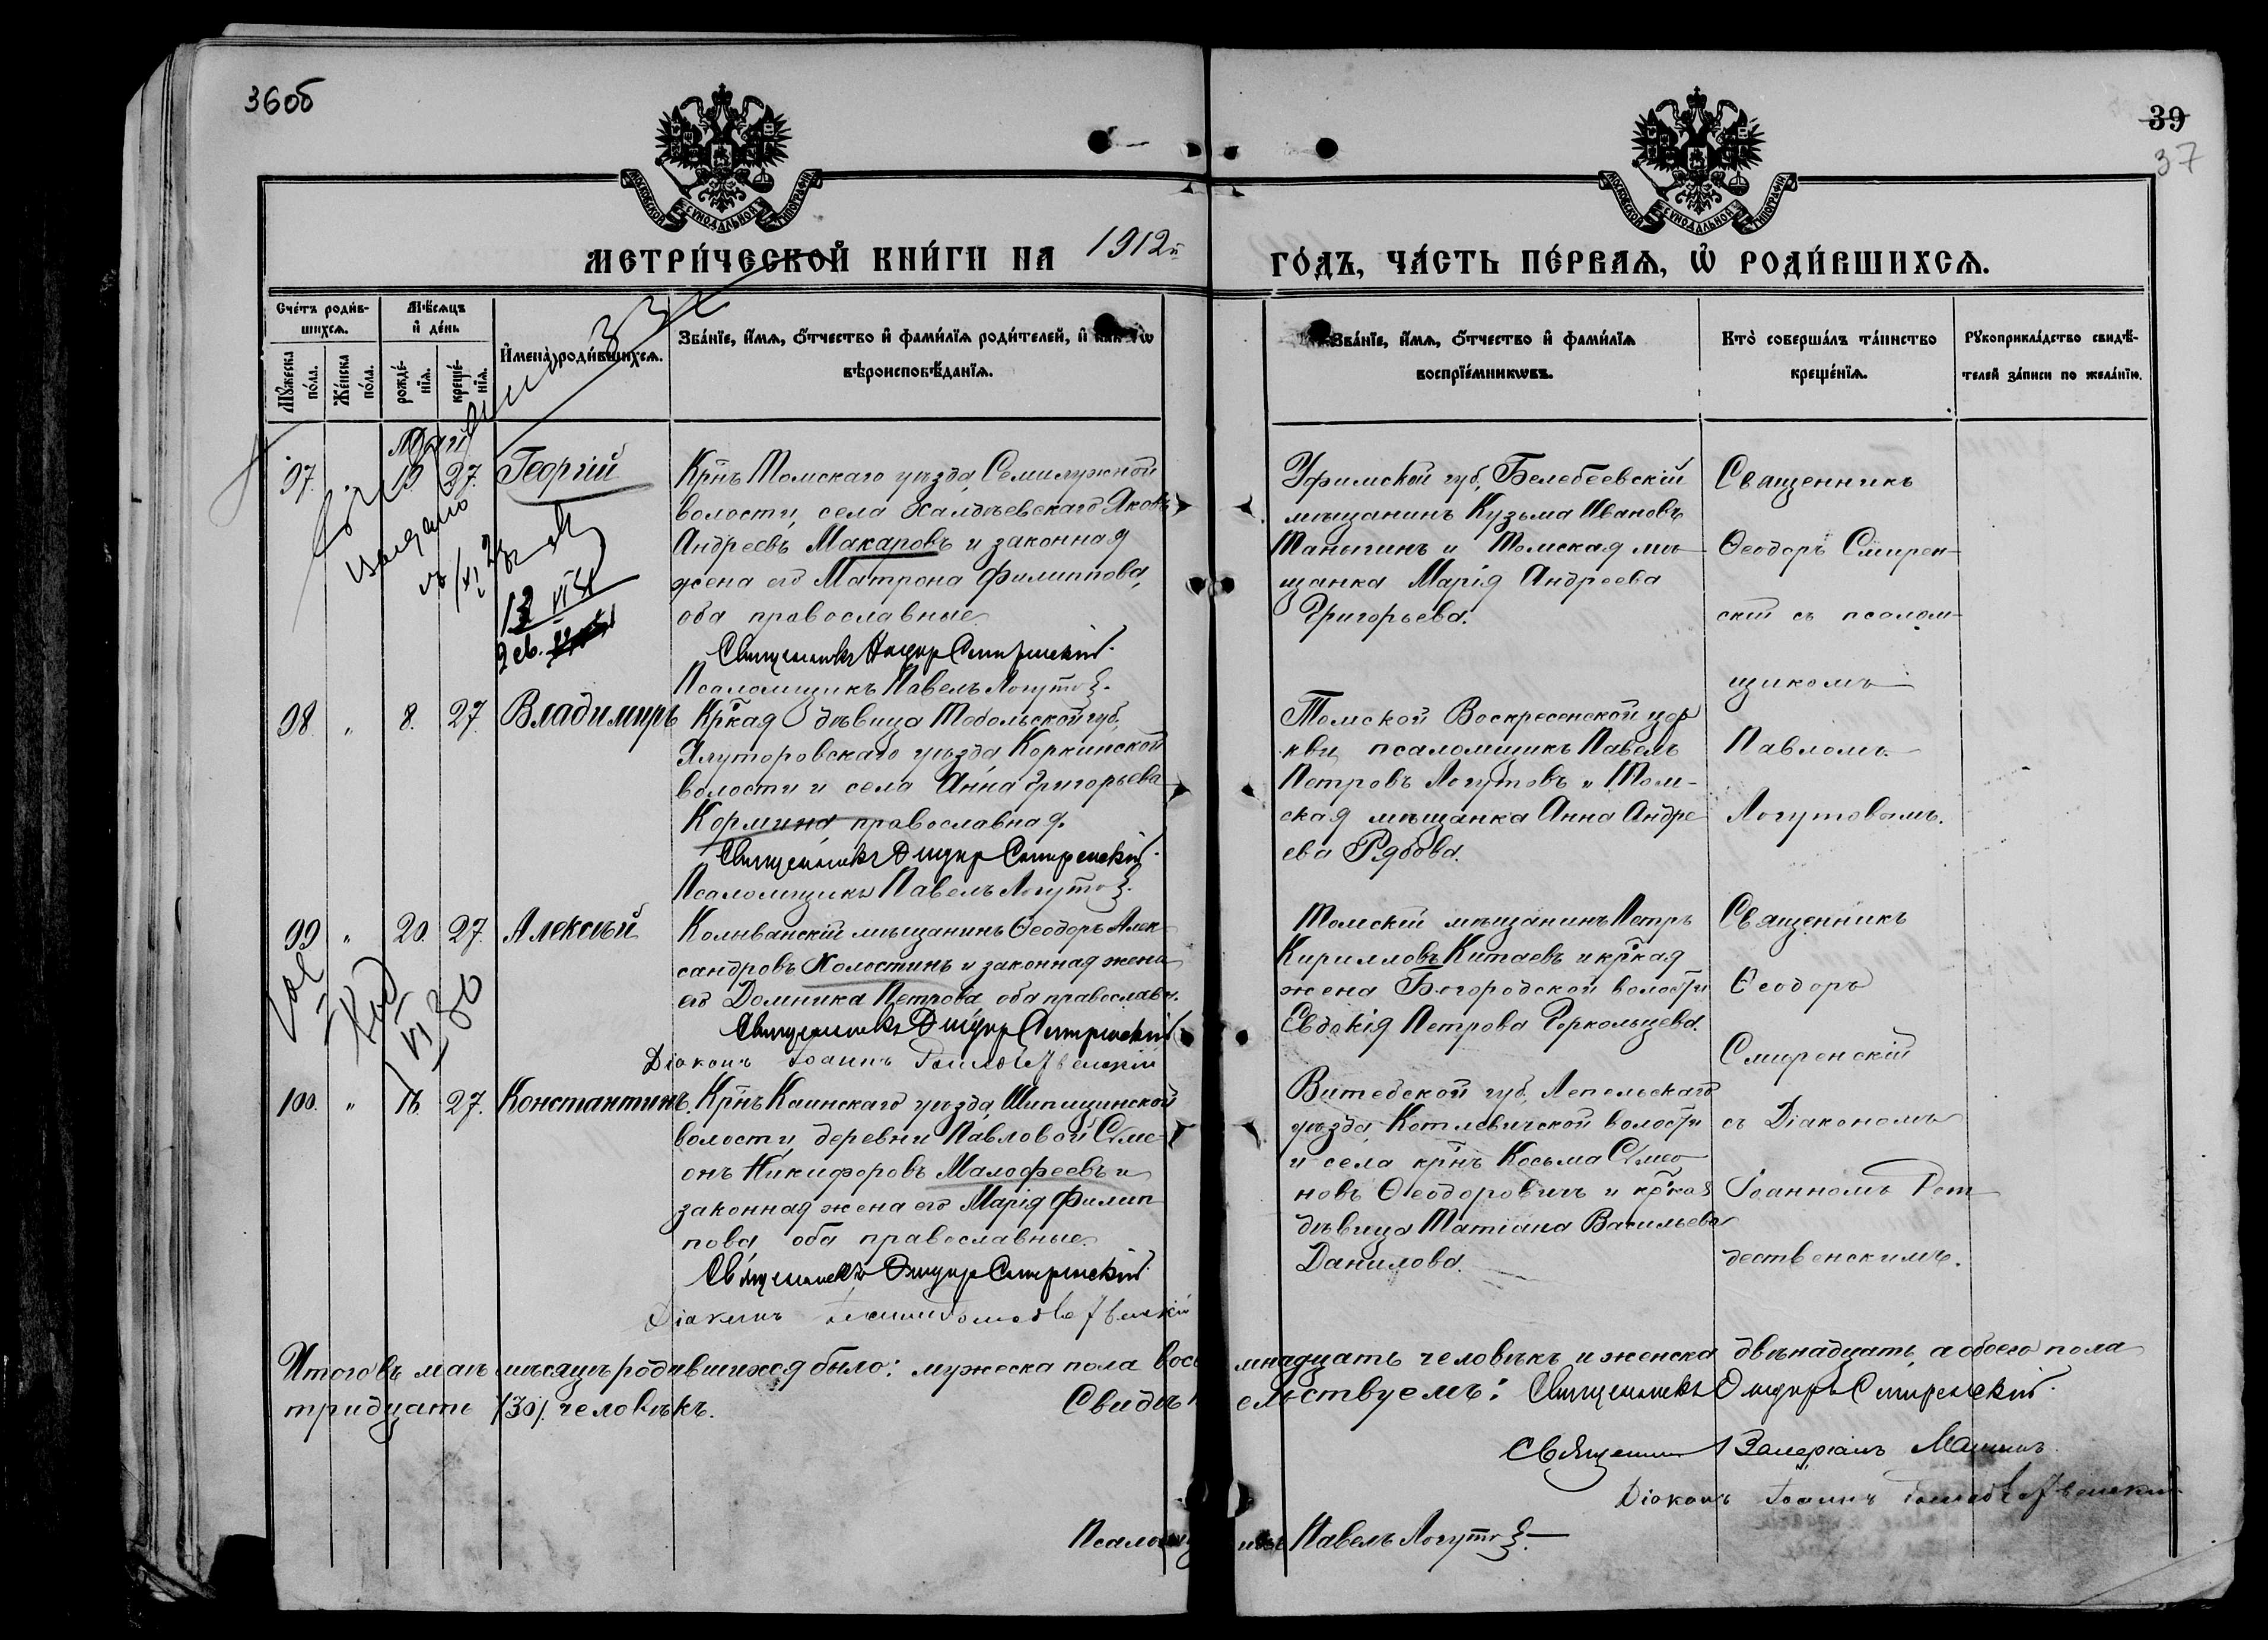 36об
39
37
МОСКОВСКОЙ СѴНОДАЛЬНОЙ ТИПОГРАФІИ
МОСКОВСКОЙ СѴНОДАЛЬНОЙ ТИПОГРАФІИ
МЕТРИ́ЧЕСКОЙ КНИ́ГИ НА 1912й
ГО́ДЪ, ЧА́СТЬ ПЕ́РВАѦ, Ѡ҆ РОДИ́ВШИХСѦ.
Сче́тъ роди́в-
шихсѧ.
Мѣ́сѧцъ
и҆ де́нь
Мꙋ́жеска по́ла.
Же́нска по́ла.
рожде́-нїѧ.
креще́-нїѧ.
И҆мена̀ роди́вшихсѧ.
Зва́нїе, и҆́мѧ, ѻ҆́тчество и҆ фами́лїѧ роди́телей, и҆
вѣроисповѣ́данїѧ.
Зва́нїе, и҆́мѧ, ѻ҆́тчество и҆ фами́лїѧ
воспрїе́мникѡвъ.
Кто̀ соверша́лъ та́инство
креще́нїѧ.
Рꙋкоприкла́дство свидѣ́-
телей за́писи по жела́нїю.
Май
97. 27. Георгій
Кр̃нъ Томскаго уѣзда, Семилужной
волости, села Халдѣевскаго Яковъ
Андреевъ Макаровъ и законная
жена его Матрона Филиппова,
оба православные
Священникъ Ѳеодоръ Смиренскій.
Псаломщикъ Павелъ Логутов.
Уфимской губ, Белебеевскій
мѣщанинъ Кузьма Ивановъ
Таныгинъ и Томская мѣ
щанка Марія Андреева
Григорьева.
Священникъ
Ѳеодоръ Смирен-
скій съ псалом-
щикомъ
Павломъ
Логутовымъ.
98. " 8. 27. Владимиръ
Кр̃кая дѣвица Тобольской губ,
Ялуторовскаго уѣзда Коркинской
волости и села Анна Григорьева
Кормина православная.
Священникъ Ѳеодоръ Смиренскій.
Псаломщикъ Павелъ Логутов.
Томской Воскресенской цер
кви, псаломщикъ Павелъ
Петровъ Логутовъ и Том-
ская мѣщанка Анна Андре
ева Рябова.
99 " 20. 27. Алексѣй
Колыванскій мѣщанинъ Ѳеодоръ Алек
сандровъ Холостинъ и законная жена
его Домника Петрова, оба православн.
Священникъ Ѳеодоръ Смиренскій
Діаконъ Іоаннъ Рождественскій
Томскій мѣщанинъ Петръ
Кирилловъ Китаевъ и кр̃кая
жена Богородской волости
Евдокія Петрова Горкольцева.
Священникъ
Ѳеодоръ
Смиренскій
съ Діакономъ
Іоанномъ Рож
дественскимъ.
100. " 27. Константинъ.
Кр̃нъ Каинскаго уѣзда, Шипицинской
волости, деревни Павловой Симе
онъ Никифоровъ Малофеевъ и
законная жена его Марія Филип
пова, оба православные
Священникъ Ѳеодоръ Смиренскій
Діаконъ Іоаннъ Рождественскій
Витебской губ, Лепельскаго
уѣзда, Котлевичской волости
и села кр̃нъ Косьма Симео
новъ Ѳеодоровичъ и кр̃кая
дѣвица Татіана Васильева
Данилова.
Итого въ маѣ мѣсяцѣ родившихся было: мужеска пола восемнадцать человѣкъ и женска двѣнадцать, а обоего пола
тридцать /30/. человѣкъ. Свидѣтельствуемъ: Священникъ Ѳеодоръ Смиренскій.
Священникъ Валеріанъ
Діаконъ Іоаннъ Рождественскій
Псаломщикъ Павелъ Логутов.